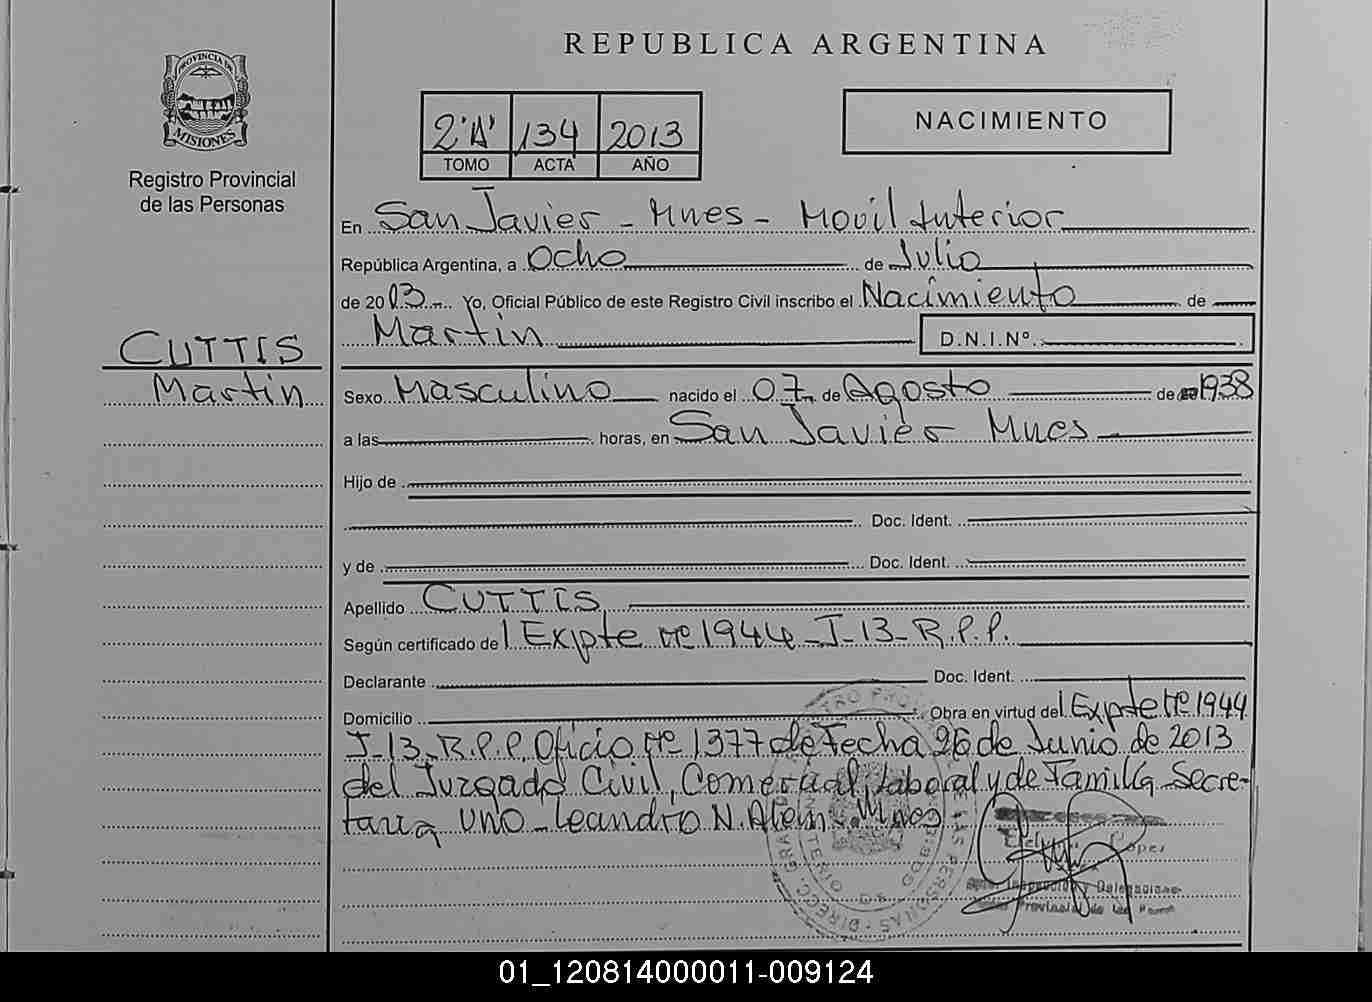 REPUBLICA ARGENTINA
PROVINCIA DE
MISIONES
Registro Provincial
de las Personas
2'A' 134 2013
TOMO ACTA AÑO
NACIMIENTO
En San Javier - Mnes - Movil Interior
República Argentina, a Ocho de Julio
de 2013 Yo, Oficial Público de este Registro Civil inscribo el Nacimiento de
Martin D.N.I.Nº.
CUTTIS
Martin
Sexo Masculino nacido el 07 de Agosto de 1938
a las horas, en San Javier Mnes
Hijo de
Doc. Ident.
y de Doc. Ident.
Apellido CUTTIS
Según certificado de l Expte Nº 1944 - J-13- R.P.P.
Declarante Doc. Ident.
Domicilio Obra en virtud del Expte Nº 1944
J-13-R.P.P. Oficio Nº 1377 de Fecha 26 de Junio de 2013
del Juzgado Civil, Comercial, Laboral y de Familia Secre-
taria Uno - Leandro N. Alem - Mnes
Lopez
Dpto. Inspección y Delegaciones
Provincial de las
01_120814000011-009124